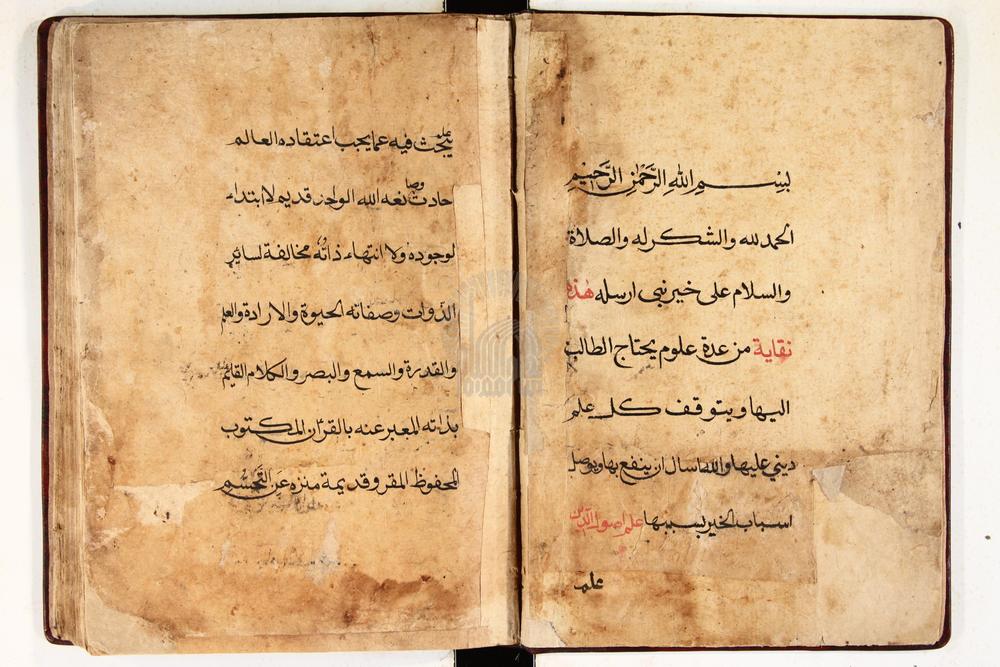 بِسْمِ اللهِ الرَّحْمٰنِ الرَّحِيْمِ
الحمد لله والشكر له والصلاة
والسلام على خير نبى ارسله هذه
نقاية من عدة علوم يحتاج الطالب
اليها ويتوقف كل علم
ديني عليها والله اسال ان ينفع بها ويوصل
اسباب الخير بسببها علم اصول الدين
علم
علم يبحث فيه عما يجب اعتقاده العالم
حادث وصانعه الله الواحد قديم لا ابتداء
لوجوده ولا انتهاء ذاتُه مخالفة لسائر
الذوات وصفاته الحيوة والارادة والعلم
والقدرة والسمع والبصر والكلام القايم
بذاته المعبر عنه بالقرآن المكتوب
المحفوظ المقرو قديمة منزه عَن التَّجسّم